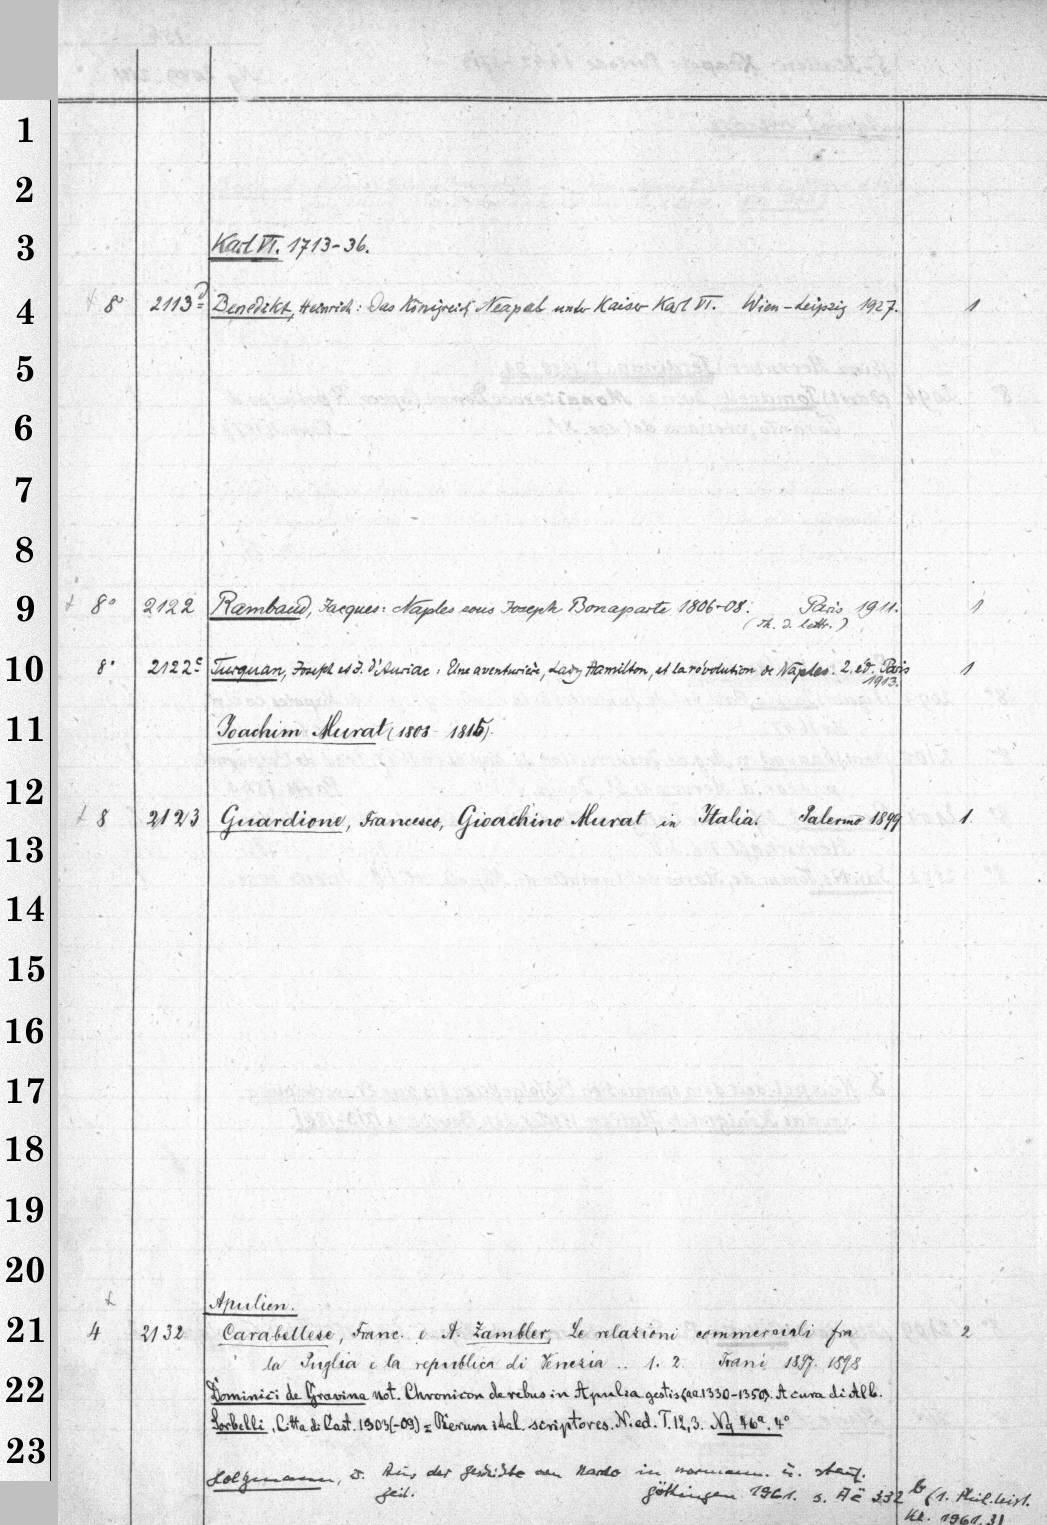 1
2
3
Karl VI. 1713-36.
4
+ 8° 2113 Benedikt, Heinrich: Das Königreich Neapel unter Kaiser Karl VI. Wien-Leipzig 1927. 1
5
6
7
8
9
+ 8° 2122 Rambaud, Jacques: Naples sous Joseph Bonaparte 1806-08. Paris 1911. 1
(Th. d. lettr.)
10
8° 2122c Turquan, Joseph et J. d'Auriac: Une aventurière, Lady Hamilton, et la révolution de Naples. 2. éd. Paris 1
1913.
11
Joachim Murat (1808 1815).
12
+ 8 2123 Guardione, Francesco, Gioachino Murat in Italia. Palermo 1899 1.
13
14
15
16
17
18
19
20
Apulien.
21
4 2132 Carabellese, Franc. e A. Zambler, Le relazioni commerciali fra 2
la Puglia e la republica di Venezia .. 1. 2. Trani 1897. 1898
22
Dominici de Gravina not. Chronicon de rebus in Apulia gestis (aa 1330-1350). A cura di Alb.
Sorbelli, Citta di Cast. 1903(-09) = Rerum ital. scriptores. N. ed. T. 12, 3. Nq 46a. 4°
23
Holzmann, Aus der Geschichte von Nardo in normann. u. stauf.
Zeit. Göttingen 1961. s. Ac 332 b (1. Phil. hist.
Kl. 1961, 3)